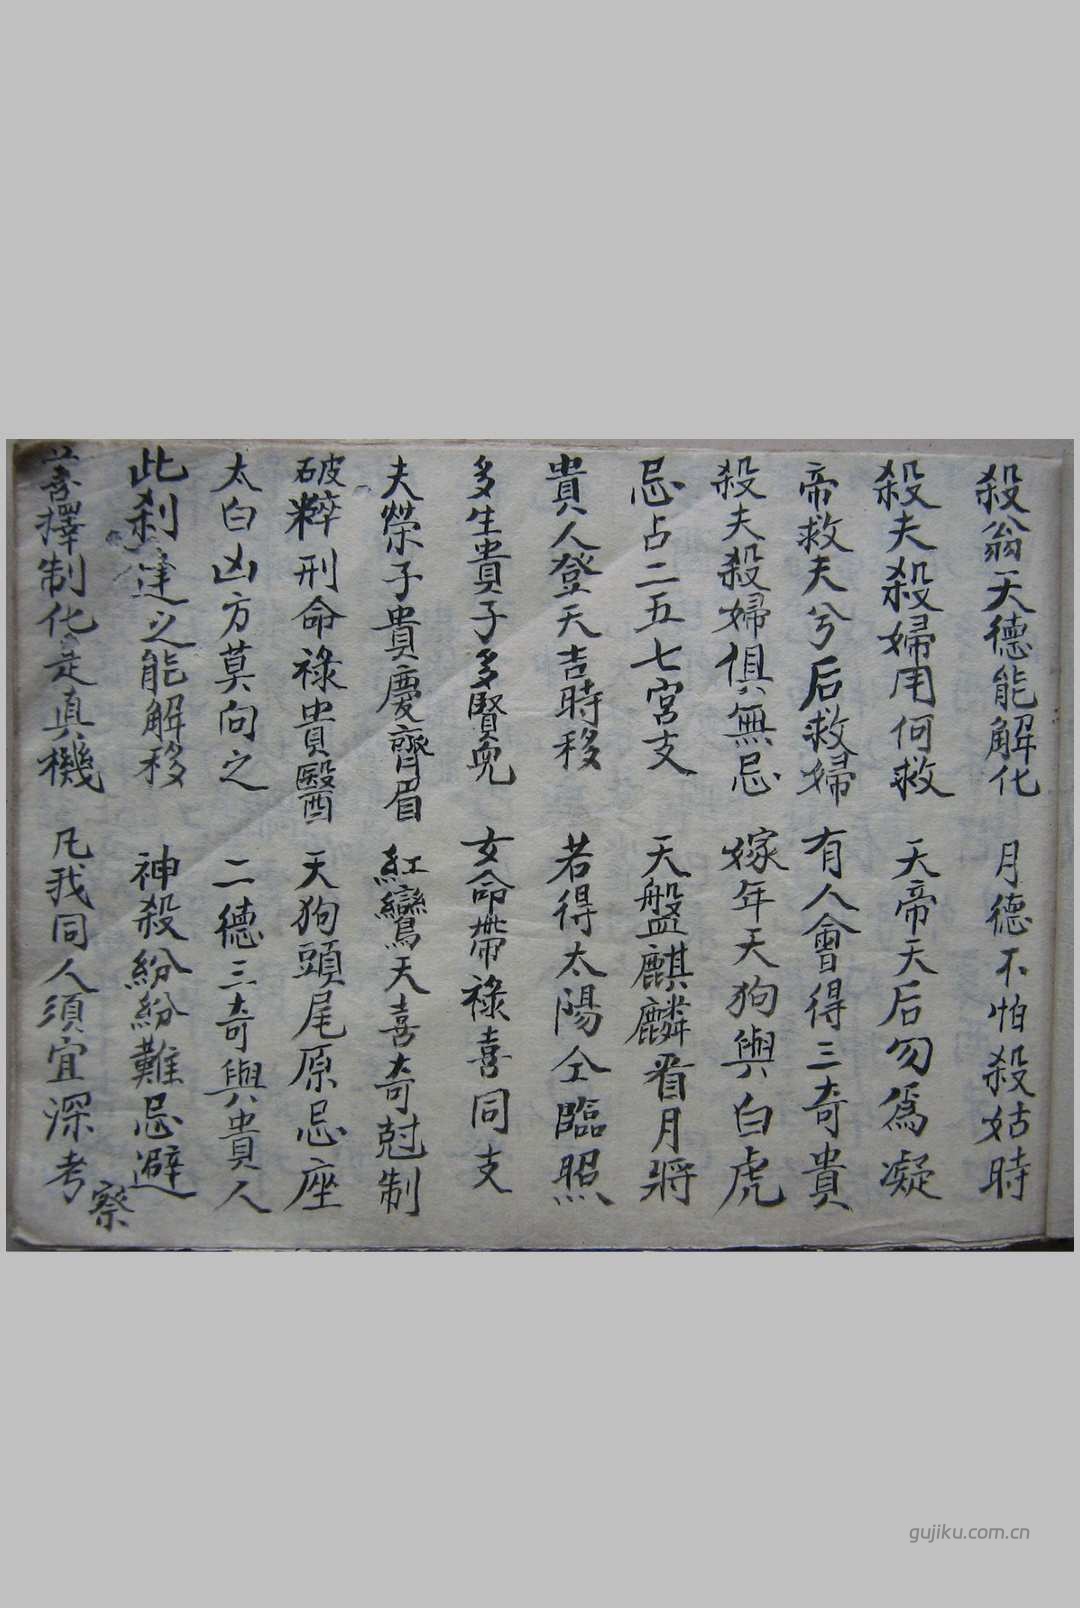 殺翁天德能解化 月德不怕殺姑時
殺夫殺婦用何救 天帝天后勿為凝
帝救夫兮后救婦 有人會得三奇貴
殺夫殺婦俱無忌 嫁年天狗與白虎
忌占二五七宮支 天盤麒麟看月將
貴人登天吉時移 若得太陽仝臨照
多生貴子多賢兒 女命帶祿喜同支
夫榮子貴慶齊眉 紅鸞天喜奇尅制
破粹刑命祿貴醫 天狗頭尾原忌座
太白凶方莫向之 二德三奇與貴人
此刹達之能解移 神殺紛紛難忌避
善擇制化是真機 凡我同人須宜深考
察
gujiku.com.cn